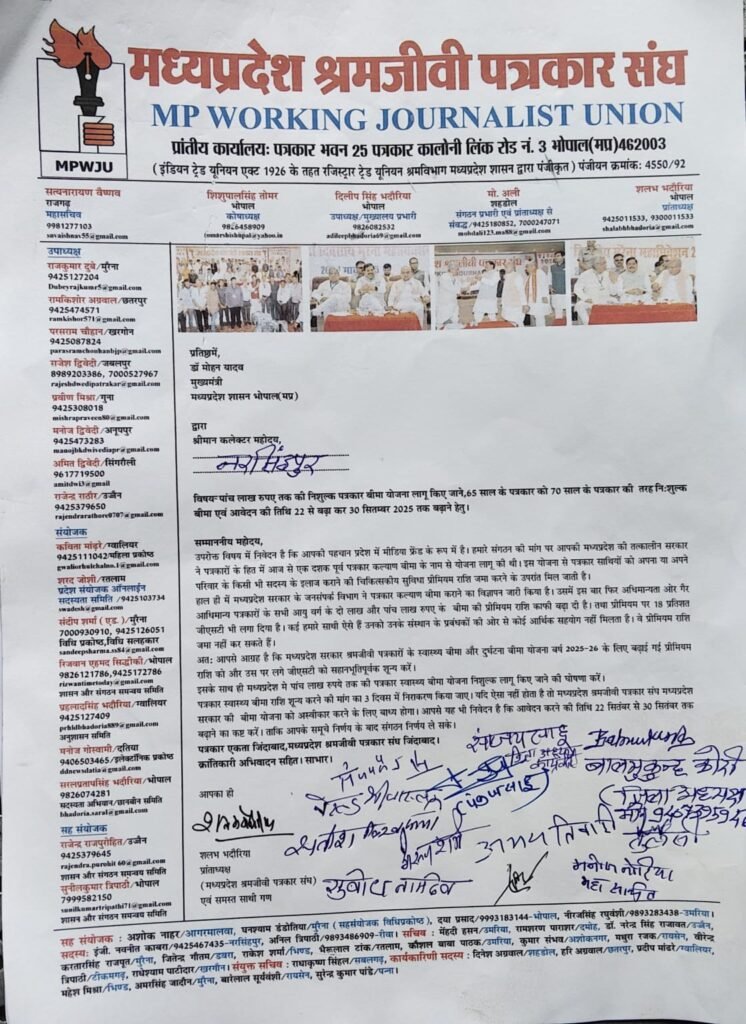 मध्यप्रदेश श्रमजीवी पत्रकार संघ
MP WORKING JOURNALIST UNION
प्रांतीय कार्यालयः पत्रकार भवन 25 पत्रकार कालोनी लिंक रोड नं. 3 भोपाल(मप्र)462003
( इंडियन ट्रेड यूनियन एक्ट 1926 के तहत रजिस्टार ट्रेड यूनियन श्रमविभाग मध्यप्रदेश शासन द्वारा पंजीकृत ) पंजीयन क्रमांक: 4550/92
MPWJU
सत्यनारायण वैष्णव
राजगढ़
महासचिव
9981277103
suvaishnav55@gmail.com
शिशुपालसिंह तोमर
भोपाल
कोषाध्यक्ष
9826458909
tomarshishipal@yahoo.in
दिलीप सिंह भदौरिया
भोपाल
उपाध्यक्ष/मुख्यालय प्रभारी
9826082532
adileepbhadoria69@gmail.com
मो. अली
शहडोल
संगठन प्रभारी एवं प्रांताध्यक्ष से
संवद्ध/9425180852, 7000247071
mohdali123.ma88@gmail.com
शलभ भदौरिया
भोपाल
प्रांताध्यक्ष
9425011533, 9300011533
shalabhbhadoria@gmail.com
उपाध्यक्ष
राजकुमार दुबे/मुरैना
9425127204
Dubeyrajkumr5@gmail.com
रामकिशोर अग्रवाल/छतरपुर
9425474571
ramkishor571@gmail.com
परसराम चौहान/खरगोन
9425087824
parasramchouhanbjp@gmail.com
राजेश द्विवेदी/जबलपुर
8989203386, 7000527967
rajeshdwedipatrakar@gmail.com
प्रवीण मिश्रा/गुना
9425308018
mishrapraveen80@gmail.com
मनोज द्विवेदी/अनूपपुर
9425473283
manojbkdwivediapr@gmail.com
अमित द्विवेदी/सिंगरौली
9617719500
amitdwi3@gmail.com
राजेन्द्र राठौर/उज्जैन
9425379650
rajendrarathore0707@gmail.com
संयोजक
कविता मांढरे/ग्वालियर
9425111042/महिला प्रकोष्ठ
gwaliorhulchalno.1@gmail.com
शरद जोशी/रतलाम
प्रदेश संयोजक ऑनलाईन
सदस्यता समिति /9425103734
swadesh@gmail.com
संदीप शर्मा (एड. )/मुरैना
7000930910, 9425126051
विधि प्रकोष्ठ,विधि सलहकार
sandeepsharma.ss84@gmail.com
रिजवान एहमद सिद्धीकी/भोपाल
9826121786,9425172786
rizwantimetoday@gmail.com
शासन और संगठन समन्वय समिति
प्रहलादसिंह भदौरिया/भोपाल
9425127409
prhldbhadoria889@gmail.com
अनुशासन समिति
मनोज गोस्वामी/दतिया
9406503465/इलेक्टॉनिक प्रकोष्ठ
ddnewsdatia@gmail.com
सरलप्रतापसिंह भदौरिया/भोपाल
9826074281
सदस्यता अभियान/छानबीन समिति
bhadoria.saral@gmail.com
सह संयोजक
राजेन्द्र राजपुरोहित/उज्जैन
9425379645
rajendra.purohit 60@gmail.com
शासन और संगठन समन्वय समिति
सुनीलकुमार त्रिपाठी/भोपाल
7999582150
sunilkumartripathi71@gmail.com
शासन और संगठन समन्वय समिति
प्रतिष्ठमें,
डॉ मोहन यादव
मुख्यमंत्री
मध्यप्रदेश शासन भोपाल(मप्र)
द्वारा
श्रीमान कलेक्टर महोदय,
नरसिंहपुर
विषय-पांच लाख रुपए तक की निशुल्क पत्रकार बीमा योजना लागू किए जाने,65 साल के पत्रकार को 70 साल के पत्रकार की तरह नि:शुल्क
बीमा एवं आवेदन की तिथि 22 से बढ़ा कर 30 सितम्बर 2025 तक बढ़ाने हेतु।
सम्माननीय महोदय,
उपरोक्त विषय में निवेदन है कि आपकी पहचान प्रदेश में मीडिया फ्रेंड के रूप में है। हमारे संगठन की मांग पर आपकी मध्यप्रदेश की तत्कालीन सरकार
ने पत्रकारों के हित में आज से एक दशक पूर्व पत्रकार कल्याण बीमा के नाम से योजना लागू की थी। इस योजना से पत्रकार साथियों को अपना या अपने
परिवार के किसी भी सदस्य के इलाज कराने की चिकित्सकीय सुविधा प्रीमियम राशि जमा करने के उपरांत मिल जाती है।
हाल ही में मध्यप्रदेश सरकार के जनसंपर्क विभाग ने पत्रकार कल्याण बीमा कराने का विज्ञापन जारी किया है। उसमें इस बार फिर अधिमान्यता ओर गैर
आधिमान्य पत्रकारों के सभी आयु वर्ग के दो लाख और पांच लाख रुपए के बीमा की प्रीमियम राशि काफी बढ़ा दी है। तथा प्रीमियम पर 18 प्रतिशत
जीएसटी भी लगा दिया है। कई हमारे साथी ऐसे हैं उनको उनके संस्थान के प्रबंधकों की ओर से कोई आर्थिक सहयोग नहीं मिलता है। वे प्रीमियम राशि
जमा नहीं कर सकते हैं।
अत: आपसे आग्रह है कि मध्यप्रदेश सरकार श्रमजीवी पत्रकारों के स्वास्थ्य बीमा और दुर्घटना बीमा योजना वर्ष 2025-26 के लिए बढ़ाई गई प्रीमियम
राशि को और उस पर लगे जीएसटी को सहानभूतिपूर्वक शून्य करें।
इसके साथ ही मध्यप्रदेश मे पांच लाख रुपये तक की पत्रकार स्वास्थ्य बीमा योजना निशुल्क लागू किए जाने की घोषणा करें।
पत्रकार स्वास्थ्य बीमा राशि शून्य करने की मांग का 3 दिवस में निराकरण किया जाए। यदि ऐसा नहीं होता है तो मध्यप्रदेश श्रमजीवी पत्रकार संघ मध्यप्रदेश
सरकार की बीमा योजना को अस्वीकार करने के लिए बाध्य होगा। आपसे यह भी निवेदन है कि आवेदन करने की तिथि 22 सितंबर से 30 सितंबर तक
बढ़ाने का कष्ट करें। ताकि आपके समूचे निर्णय के बाद संगठन निर्णय ले सके।
पत्रकार एकता जिंदाबाद,मध्यप्रदेश श्रमजीवी पत्रकार संघ जिंदाबाद।
क्रांतिकारी अभिवादन सहित। साभार।
आपका ही
शलभ भदौरिया
प्रांताध्यक्ष
(मध्यप्रदेश श्रमजीवी पत्रकार संघ)
एवं समस्त साथी गण
बालमुकुन्द कौरी
(जिला अध्यक्ष
अभय तिवारी
मनोज नोरिया
महा सचिव
सह संयोजक : अशोक नाहर/आगरमालवा, घनश्याम डंडोतिया/मुरैना (सहसंयोजक विधिप्रकोष्ठ), दया प्रसाद/9993183144-भोपाल, नीरजसिंह रघुवंशी/9893283438-उमरिया।
सदस्य: इंजी. नवनीत काबरा/9425467435-नरसिंहपुर, अनिल त्रिपाठी/9893486909-रीवा। सचिव : मेंहदी हसन/उमरिया, रामशरण पाराशर/दमोह, डॉ. नरेन्द्र सिंह राजावत/उज्जैन,
करतारसिंह राजपूत/मुरैना, जितेन्द्र गौतम/डबरा, राकेश शर्मा/भिण्ड, भैरूलाल टांक/रतलाम, कौशाल बाबा पाठक/उमरिया, कुमार संभव/अशोकनगर, मथुरा रजक/रायसेन, वीरेन्द्र
त्रिपाठी/टीकमगढ़, राधेश्याम पाटीदार/खरगौन। संयुक्त सचिव : राधाकृष्ण सिंहल/सबलगढ़, कार्यकारिणी सदस्य : दिनेश अग्रवाल/शहडोल, हरि अग्रवाल/छतरपुर, प्रदीप मांढरे/ग्वालियर,
महेश मिश्रा/भिण्ड, अमरसिंह जादौन/मुरैना, बारेलाल सूर्यवंशी/रायसेन, सुरेन्द्र कुमार पांडे/पन्ना।